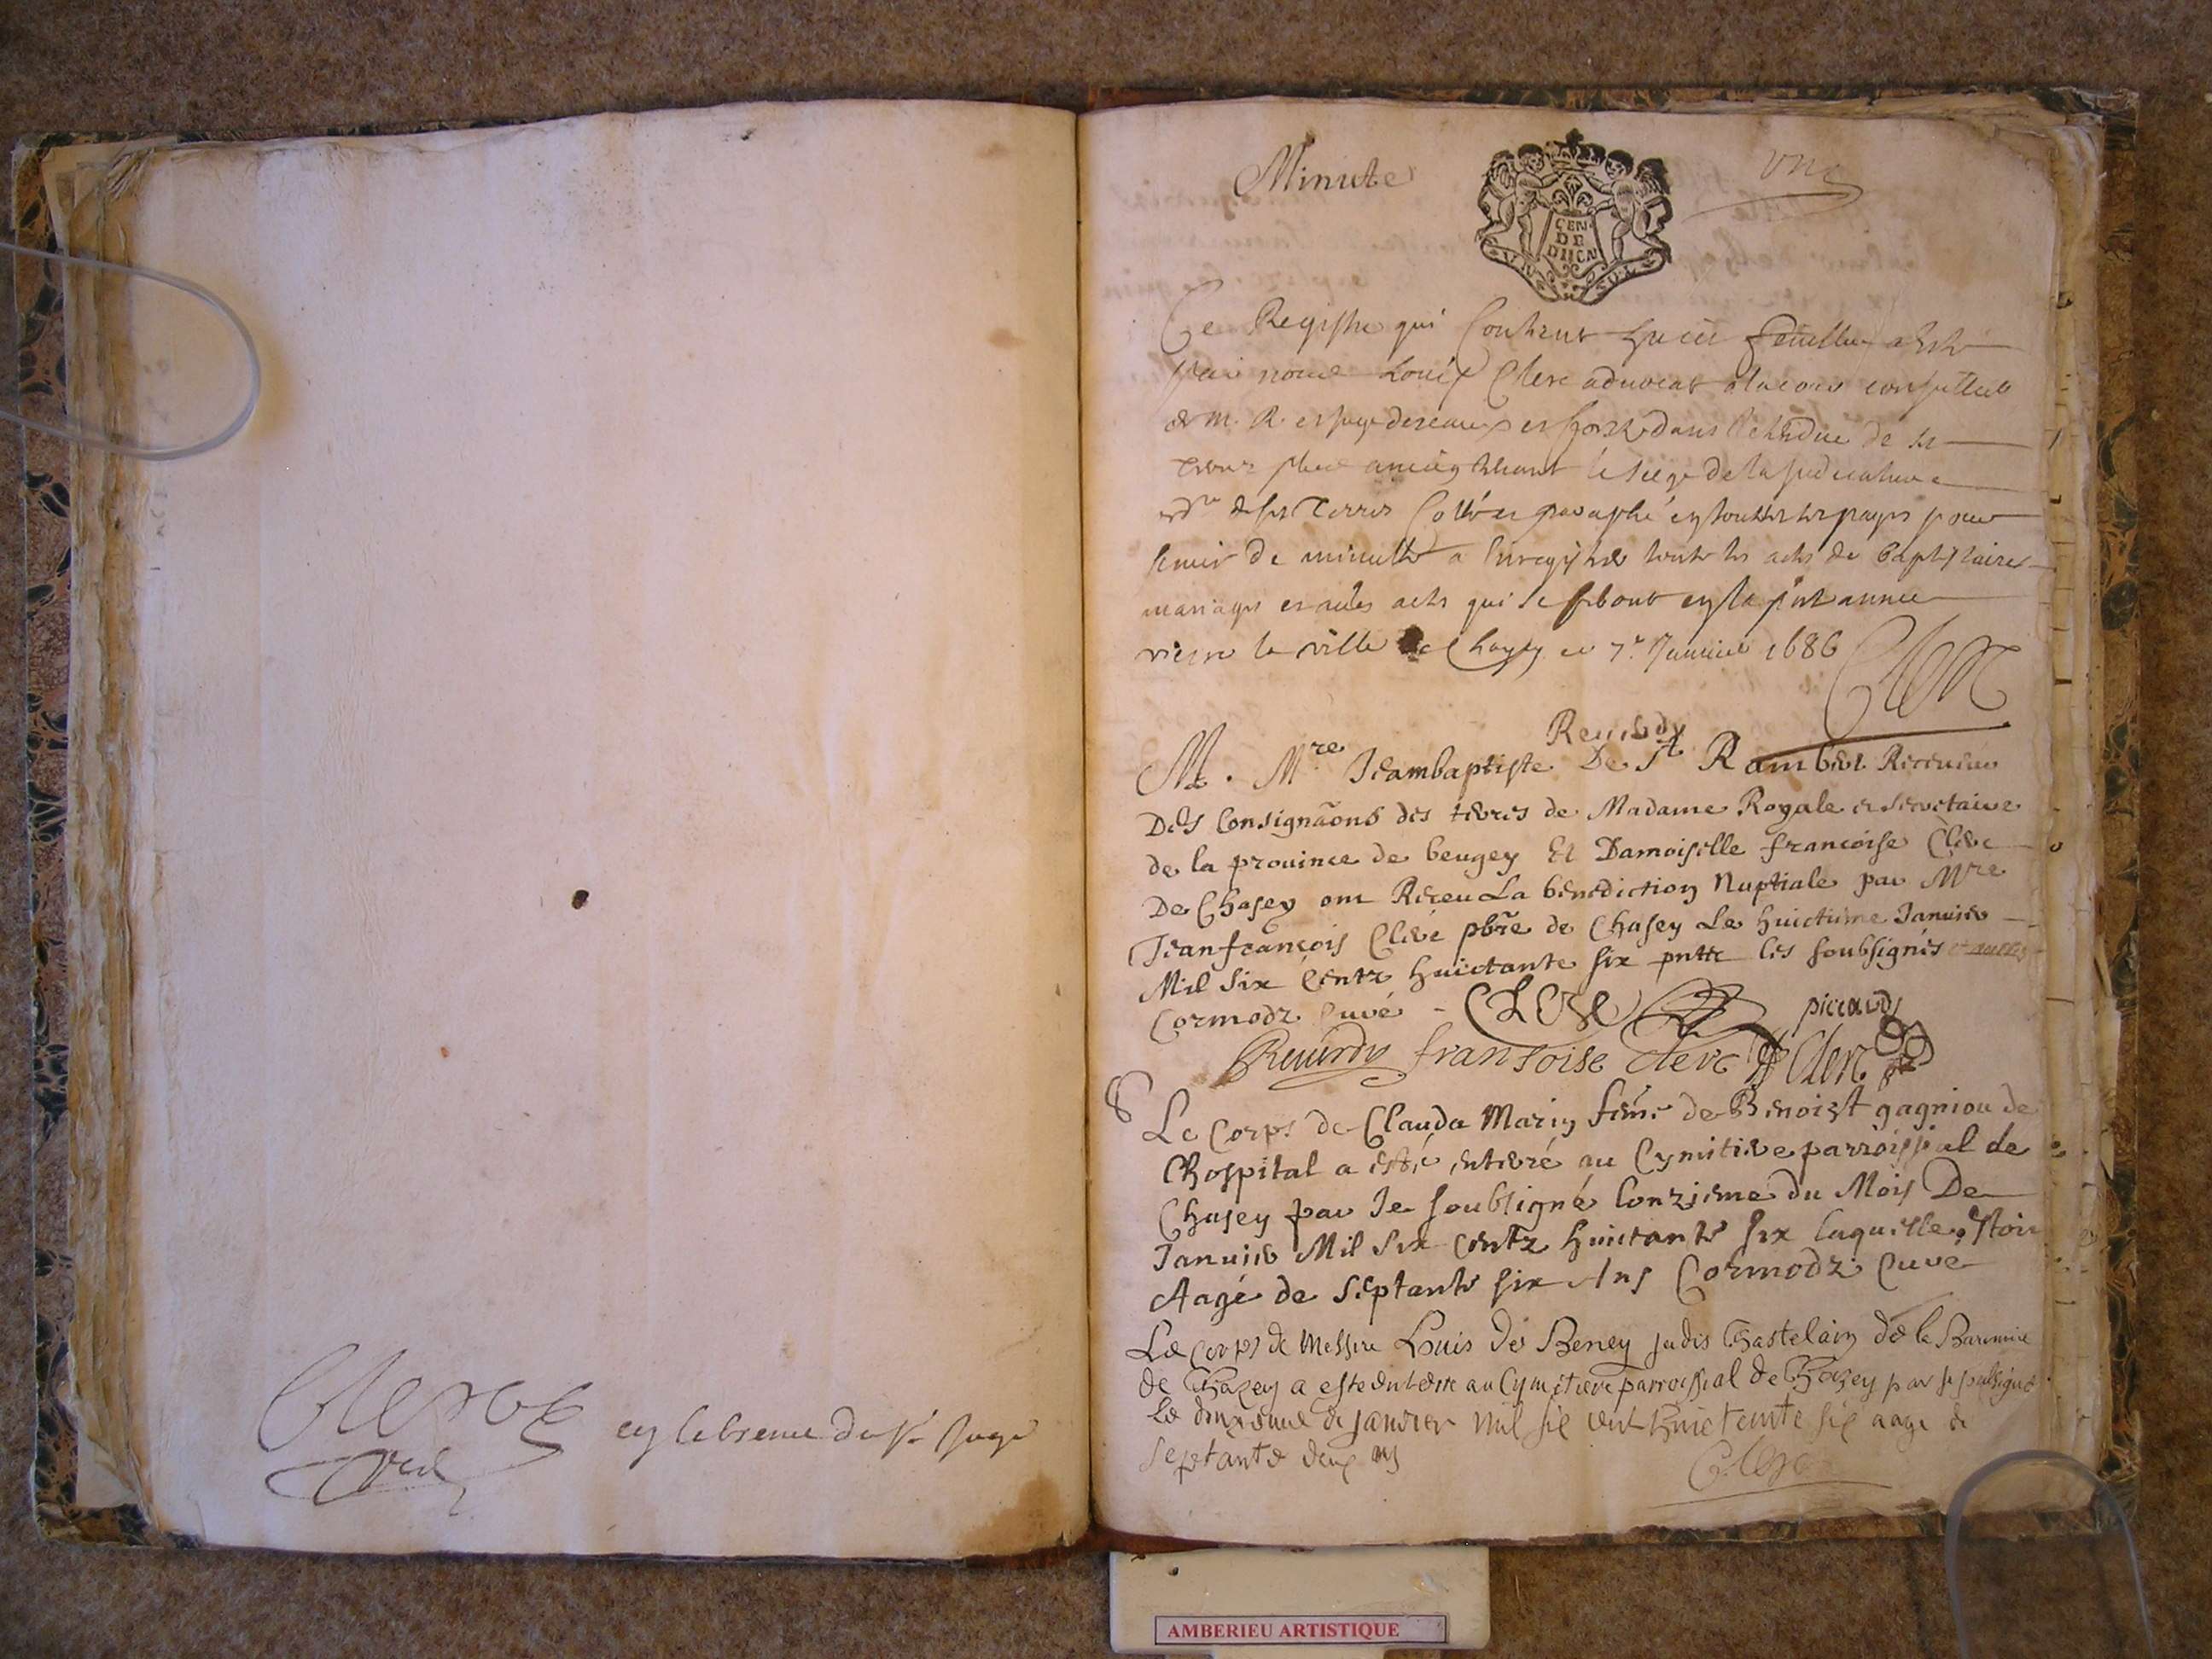 en labsence du sr Juge
Minute
une
GEN
DE
DIION
UN SOL
Ce Registre qui Contient feuillets a esté
par nous Louis Clerc aduocat a la cour conseiller
de M. R. et juge des eaux et forestz dans letendue de ses
terres plus ancien tenant le siege de la judicature
de ses Terres Cotté et paraphé en toutes ses pages pour
seruir de minutte a Enregistrer touts les actes de baptistaires
mariages et aultres actes qui se feront en la pnte annee
de Chazey ce 7e Januier 1686
Clerc
Reuerdy
M. Mre Jeambaptiste De St Rambert Receueur
Des Consignaõns des terres de Madame Royale et secretaire
de la prouince de beugey Et Damoiselle francoise Clerc
De Chasey ont Receu La benediction Nuptiale par Mre
Jeanfrancois Clerc pbre de Chasey Le huictieme Januier
Mil Six Centz huictante six pntz les soubsignés et aultres
Cormodz Curé - CLerc piccardz
Reuerdy fransoise clerc Clerc
8
Le Corps de Clauda Marin feme de Benoist gagniou de
Lhospital a esté enterré au Cymitiere parroissial de
Chasey par Je soubsigné Lonzieme du Mois De
Januier Mil Six Centz huictante six laquelle estoit
Aagé de Septante six Ans Cormodz Curé
Le Corps de Messire Louis De Beney jadis Chastelain de la Baronnie
de Chazey a esté enterre au Cymetiere parroissial de Chazey par je soubsigné
Le deuxieme de janvier mil six cent huictante six aagé de
septante deux ans
Clerc
AMBERIEU ARTISTIQUE